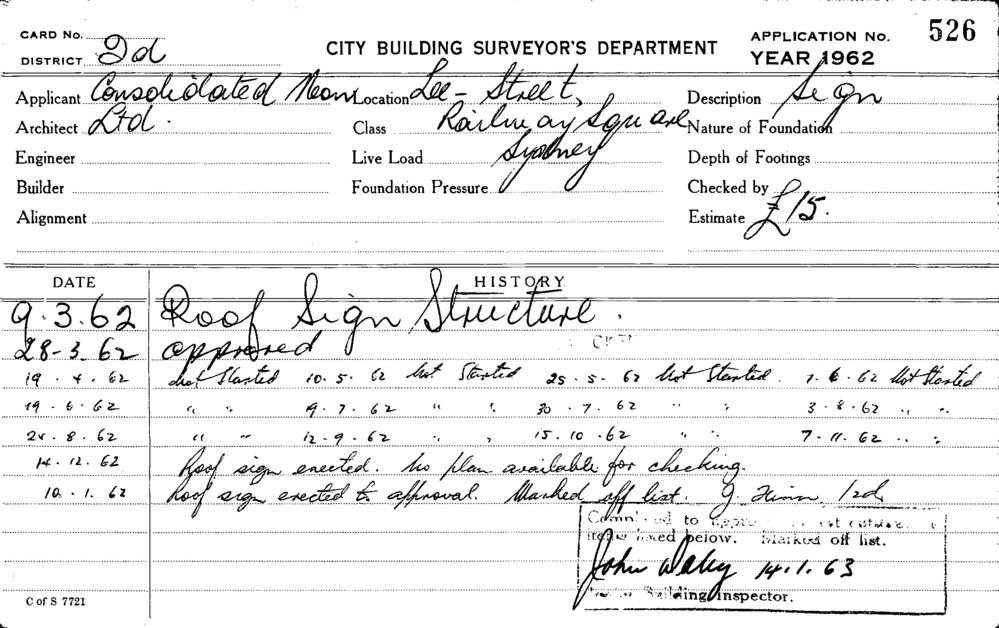 CARD No.
DISTRICT 2d
CITY BUILDING SURVEYOR'S DEPARTMENT
APPLICATION No. 526
YEAR 1962
Applicant Consolidated Neon Location Lee - Street, Description Sign
Architect Ltd. Class Railway Square Nature of Foundation
Engineer Live Load Sydney Depth of Footings
Builder Foundation Pressure Checked by
Alignment Estimate £15.
DATE HISTORY
9.3.62 Roof Sign Structure.
28-3.62 approved
19.4.62 Not Started 10.5.62 Not Started 25.5.62 Not Started. 7.6.62 Not Started
19.6.62 " " 9.7.62 " " 30.7.62 " " 3.8.62 " "
8.62 " " 12.9.62 " " 15.10.62 " " 7.11.62 " "
14.12.62 Roof sign erected. No plan available for checking.
10.1.62 Roof sign erected to approval. Marked off list. J.
Completed to
items listed below. Marked off list.
John 14.1.63
Building Inspector.
C of S 7721